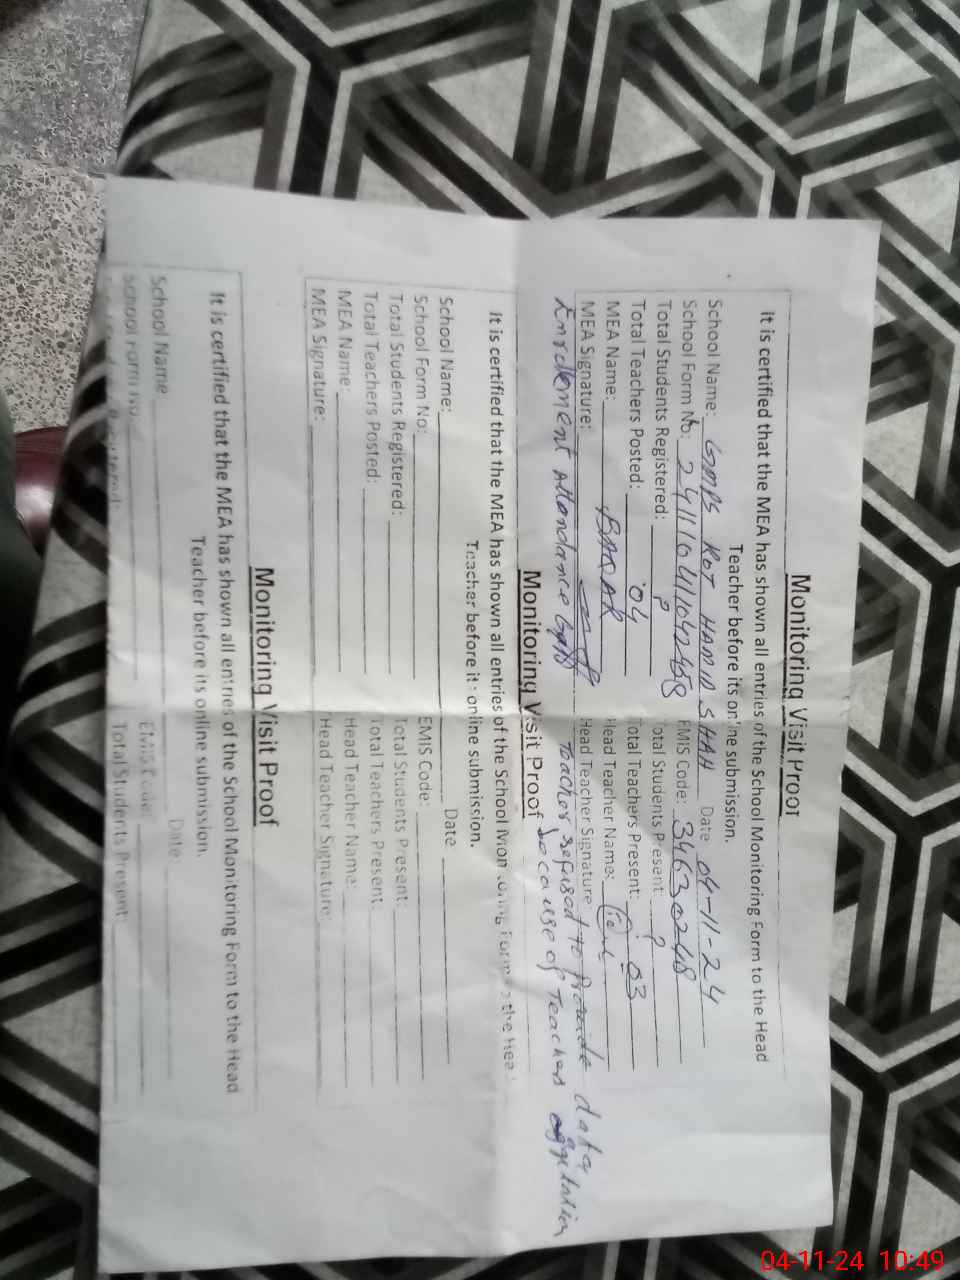 Monitoring Visit Proof
It is certified that the MEA has shown all entries of the School Monitoring Form to the Head
Teacher before its online submission.
School Name: GMPS KOT HAMID SHAH Date 04-11-24
School Form No: EMIS Code: 34630248
Total Students Registered: ? Total Students Present: ?
Total Teachers Posted: 04 Total Teachers Present: 03
MEA Name: BABAR Head Teacher Name:
MEA Signature: Head Teacher Signature:
Enrollment Attendance Teacher refused to Provide data
because of Teacher
Monitoring Visit Proof
It is certified that the MEA has shown all entries of the School Monitoring Form to the Head
Teacher before its online submission.
School Name: Date
School Form No: EMIS Code:
Total Students Registered: Total Students Present:
Total Teachers Posted: Total Teachers Present:
MEA Name: Head Teacher Name:
MEA Signature: Head Teacher Signature:
Monitoring Visit Proof
It is certified that the MEA has shown all entries of the School Monitoring Form to the Head
Teacher before its online submission.
School Name Date
School Form No: EMIS Code:
Total Students Present:
04-11-24 10:49